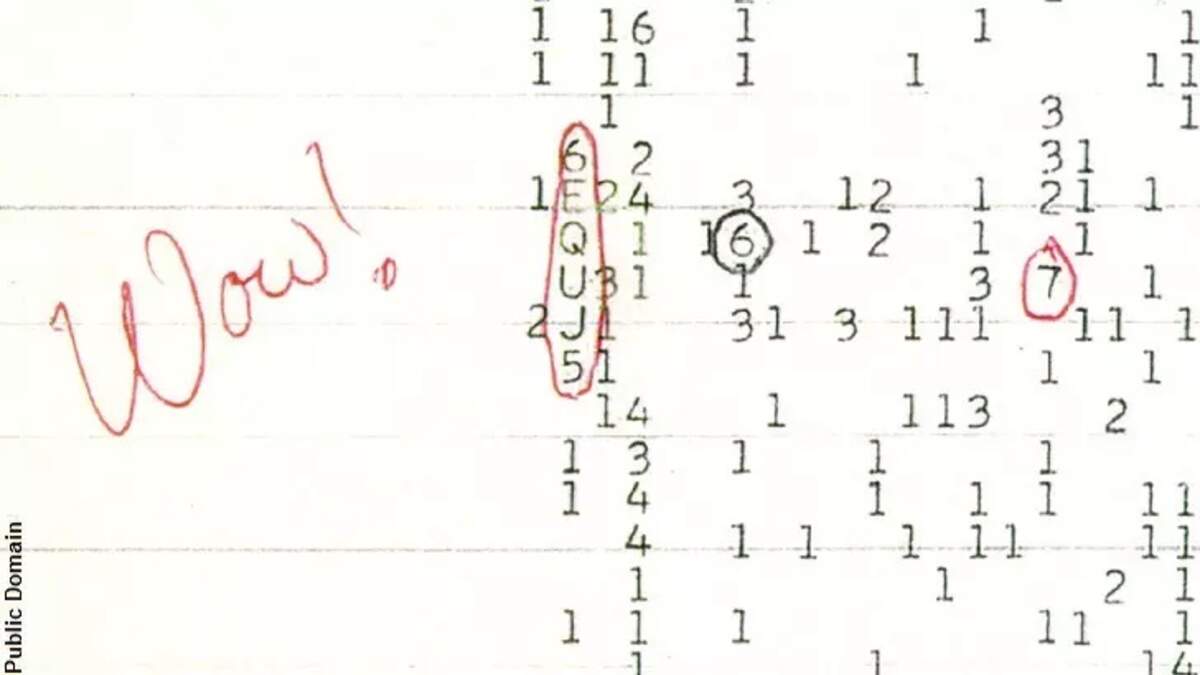 1 16 1 1 1
1 11 1 1 11
1 3 1
6 2 31
1 E24 3 12 1 21 1
Q 1 16 1 2 1 1
U31 1 3 7 1
2J1 31 3 111 11 1
51 1 1
14 1 113 2
1 3 1 1 1
1 4 1 1 1 11
4 1 1 1 11 11
1 1 2 1
1 1 1 11 1
1 1 14
Wow!
Public Domain